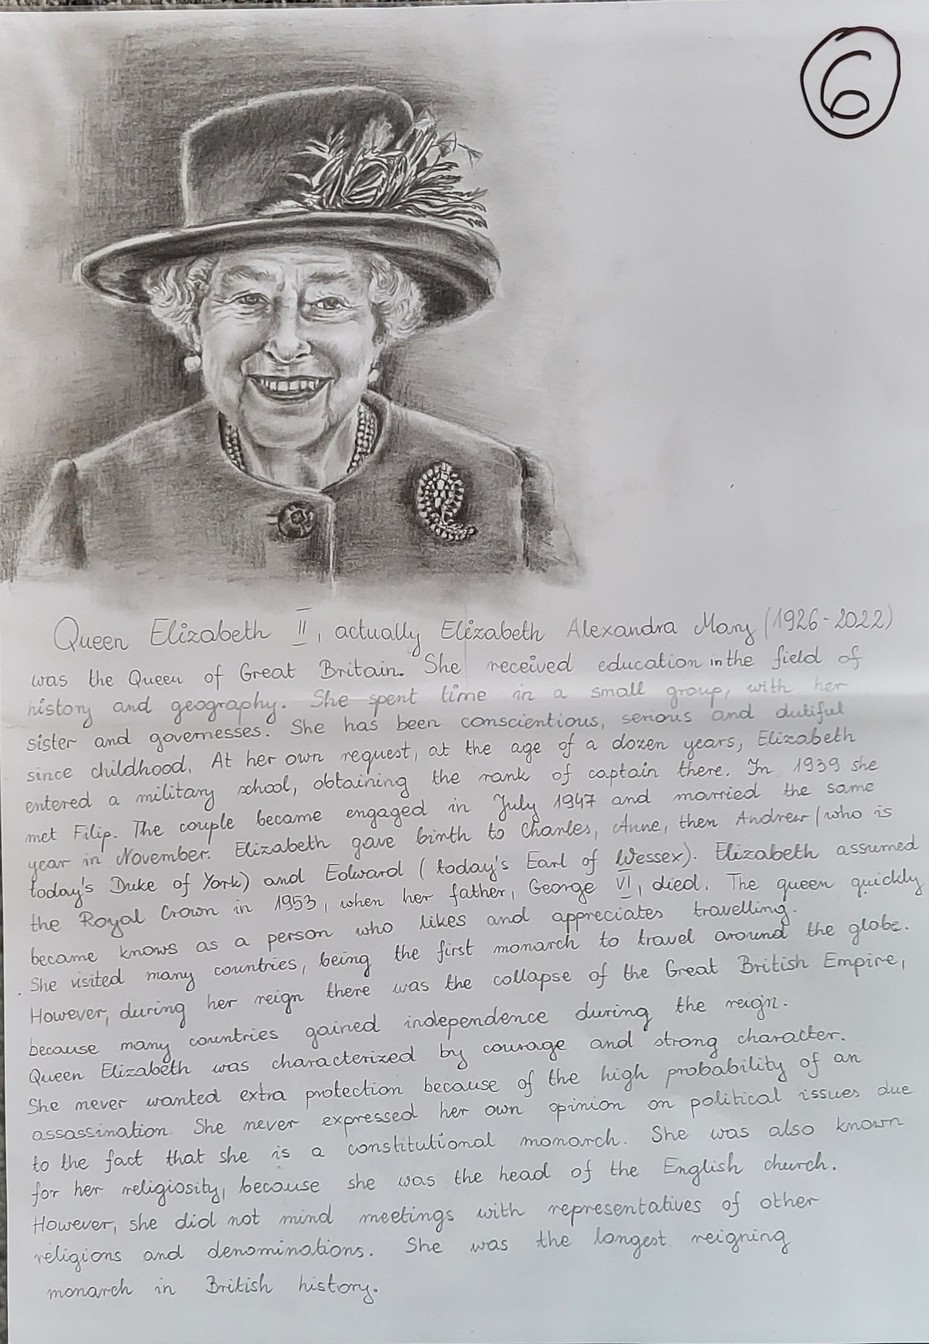 6
Queen Elizabeth II, actually Elizabeth Alexandra Mary (1926-2022)
was the Queen of Great Britain. She received education in the field of
history and geography. She spent time in a small group, with her
sister and governesses. She has been conscientious, serious and dutiful
since childhood. At her own request, at the age of a dozen years, Elizabeth
entered a military school, obtaining the rank of captain there. In 1939 she
met Filip. The couple became engaged in July 1947 and married the same
year in November. Elizabeth gave birth to Charles, Anne, then Andrew (who is
today's Duke of York) and Edward (today's Earl of Wessex). Elizabeth assumed
the Royal Crown in 1953, when her father, George VI, died. The queen quickly
became knows as a person who likes and appreciates travelling.
She visited many countries, being the first monarch to travel around the globe.
However, during her reign there was the collapse of the Great British Empire,
because many countries gained independence during the reign.
Queen Elizabeth was characterized by courage and strong character.
She never wanted extra protection because of the high probability of an
assassination. She never expressed her own opinion on political issues due
to the fact that she is a constitutional monarch. She was also known
for her religiosity, because she was the head of the English church.
However, she did not mind meetings with representatives of other
religions and denominations. She was the longest reigning
monarch in British history.